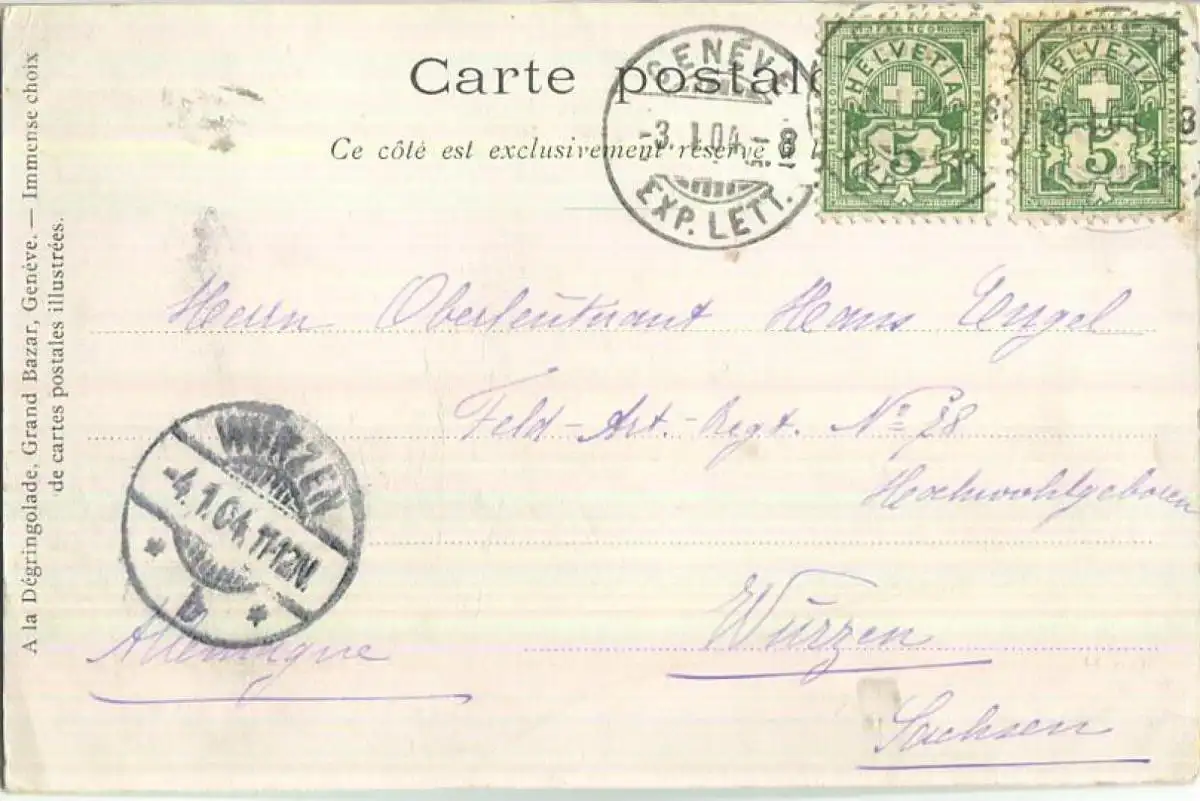 Carte postale
Ce côté est exclusivement réservé à l
GENÈVE
-3.I.04.-8
EXP. LETT.
FRANCO
HELVETIA
5
FRANCO
HELVETIA
5
Herrn Oberleutnant Hans Engel
Feld-Art.-Regt. No 78
Hochwohlgeboren
WURZEN
-4.1.04.11-12N.
* b *
Allemagne
Wurzen
Sachsen
A la Dégringolade, Grand Bazar, Genève. — Immense choix
de cartes postales illustrées.